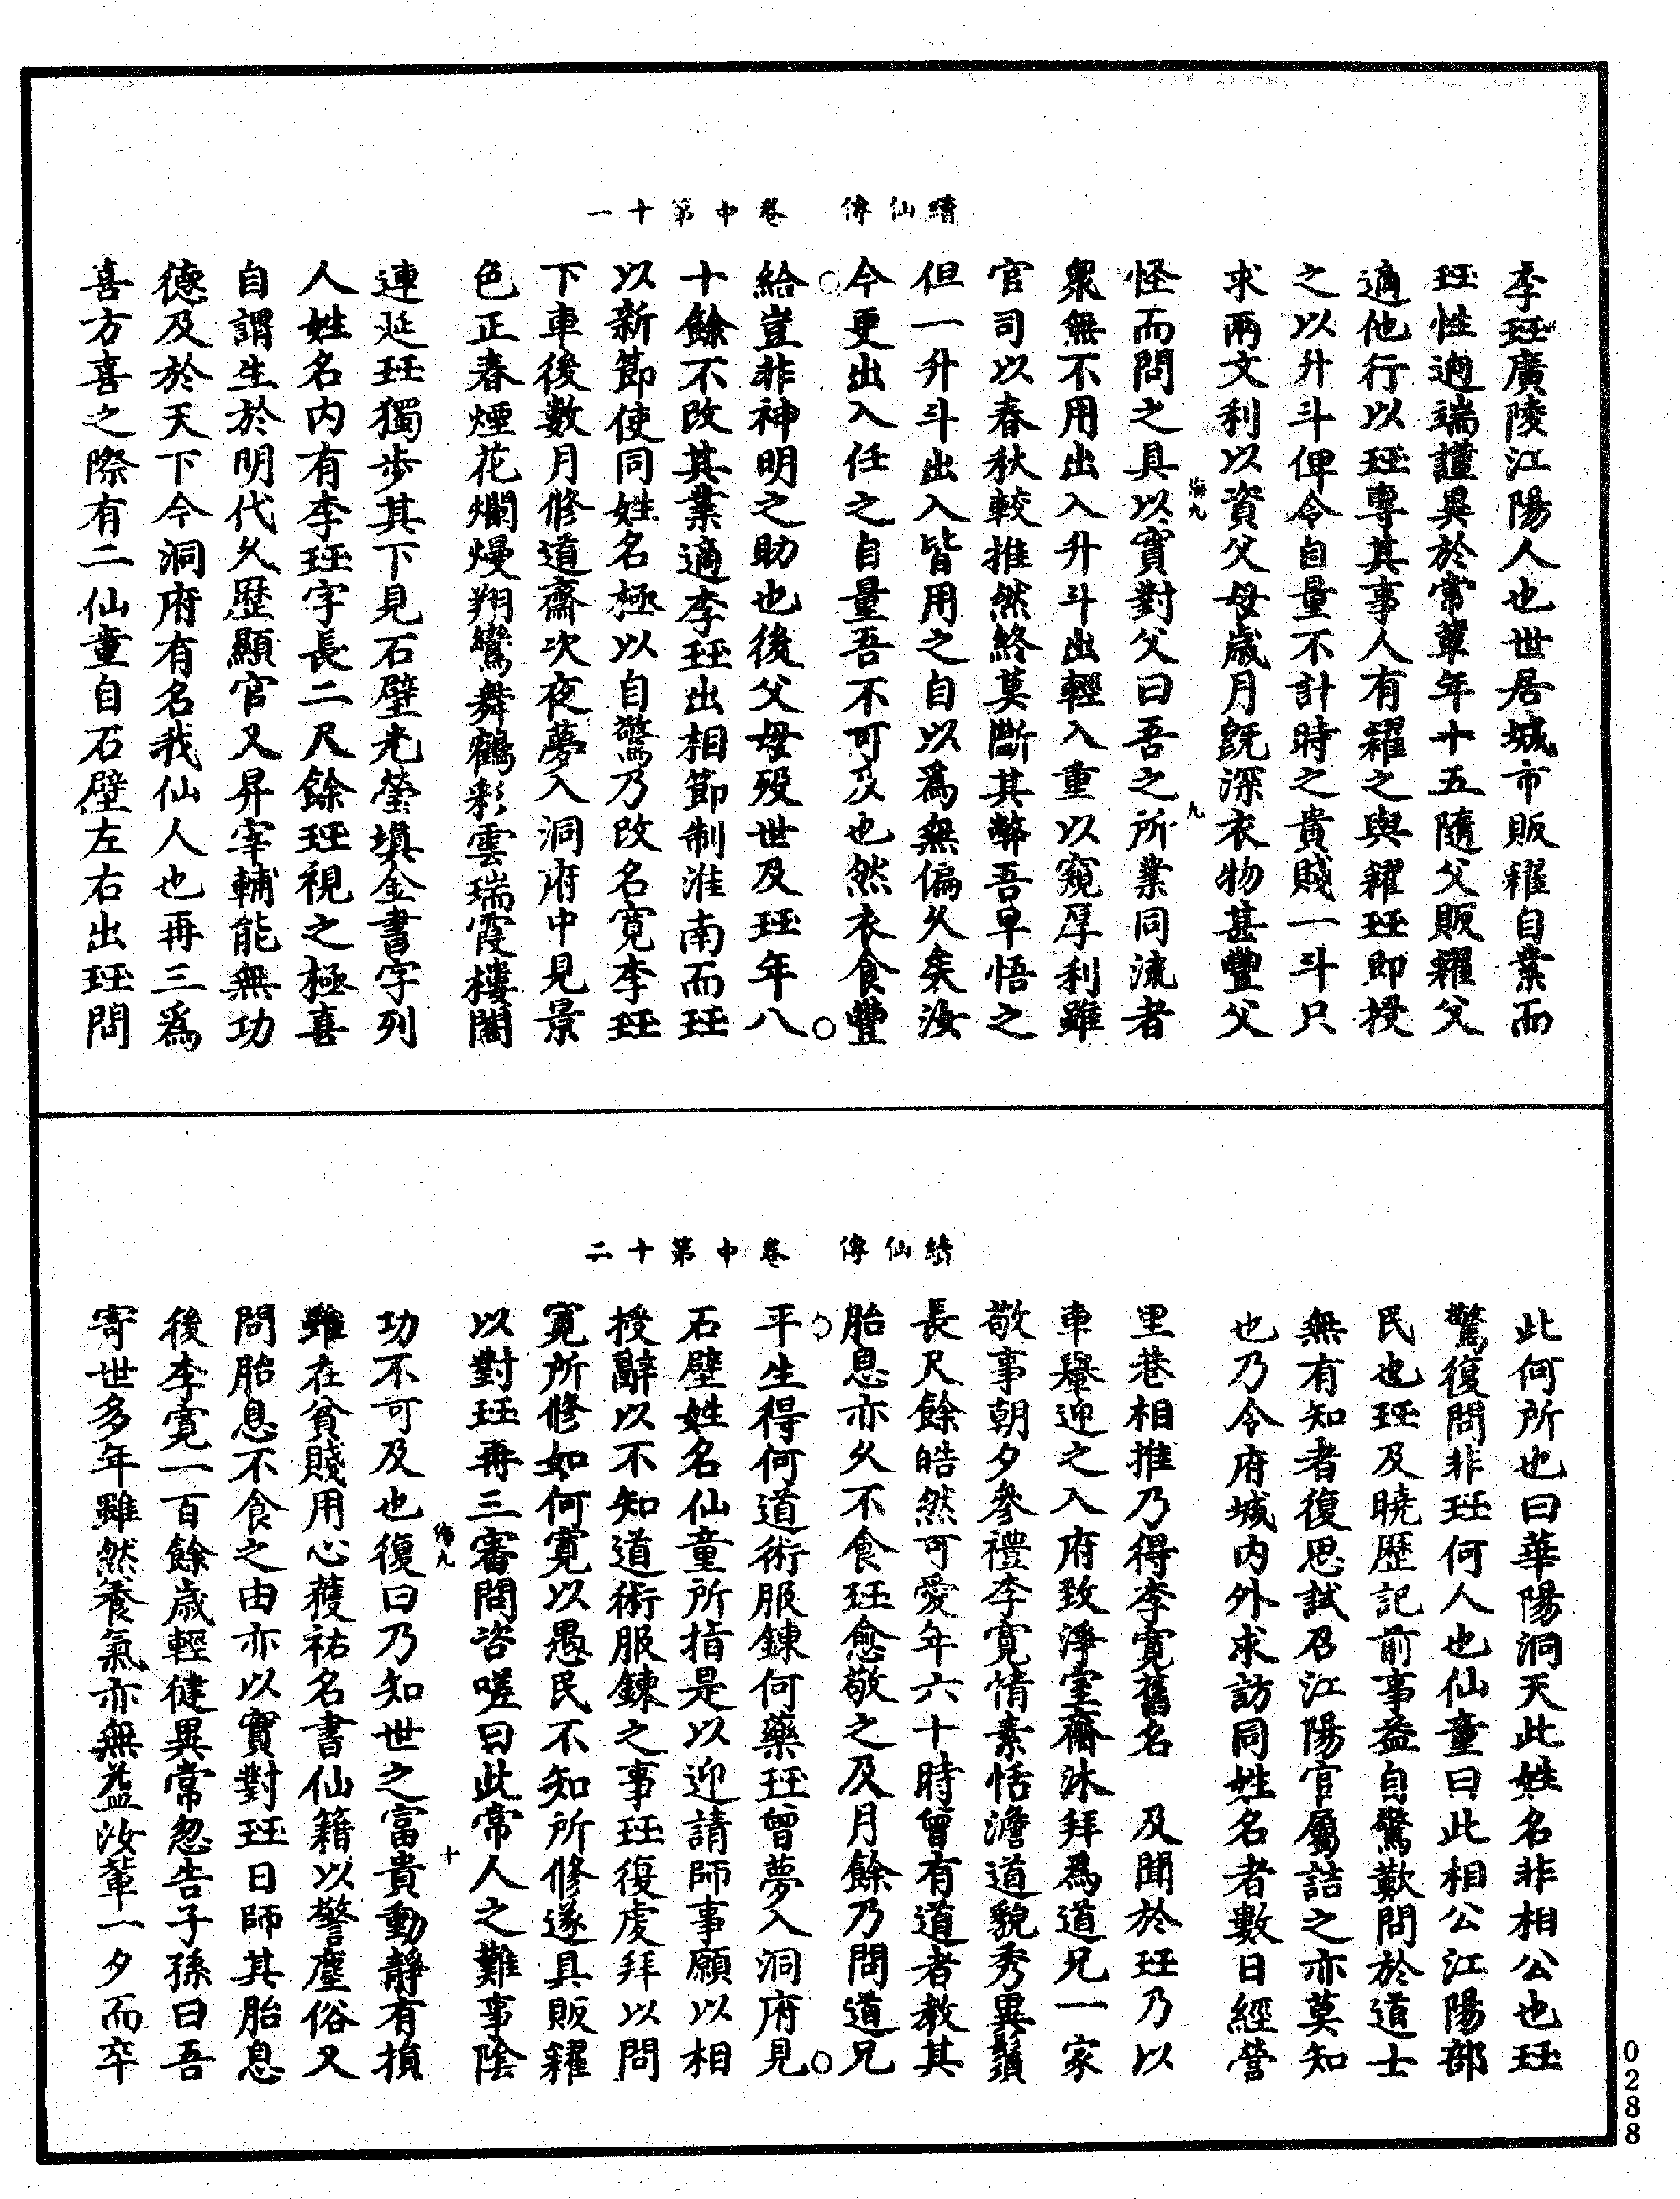 續仙傳　卷中第十一
李珏廣陵江陽人也世居城市販糴自業而
珏性迥端謹異於常輩年十五隨父販糶父
適他行以珏專其事人有糴之與糶珏即授
之以升斗俾令自量不計時之貴賤一斗只
求兩文利以資父母歲月既深衣物甚豐父
海九　九
怪而問之具以實對父曰吾之所業同流者
衆無不用出入升斗出輕入重以窺厚利雖
官司以春秋較推然終莫斷其弊吾早悟之
但一升斗出入皆用之自以爲無偏久矣汝
今更出入任之自量吾不可及也然衣食豐
給豈非神明之助也後父母歿世及珏年八
十餘不改其業適李珏出相節制淮南而珏
以新節使同姓名極以自驚乃改名寬李珏
下車後數月修道齋次夜夢入洞府中見景
色正春煙花爛熳翔鸞舞鶴彩雲瑞霞樓閣
連延珏獨步其下見石壁光瑩填金書字列
人姓名內有李珏字長二尺餘珏視之極喜
自謂生於明代久歷顯官又昇宰輔能無功
德及於天下今洞府有名我仙人也再三爲
喜方喜之際有二仙童自石壁左右出珏問
續仙傳　卷中第十二
此何所也曰華陽洞天此姓名非相公也珏
驚復問非珏何人也仙童曰此相公江陽部
民也珏及曉歷記前事益自驚歎問於道士
無有知者復思試召江陽官屬詰之亦莫知
也乃令府城內外求訪同姓名者數日經營
里巷相推乃得李寬舊名　及聞於珏乃以
車轝迎之入府致淨室齋沐拜爲道兄一家
敬事朝夕參禮李寬情素恬澹道貌秀異鬚
長尺餘皓然可愛年六十時曾有道者教其
胎息亦久不食珏愈敬之及月餘乃問道兄
平生得何道術服鍊何藥珏曾夢入洞府見
石壁姓名仙童所指是以迎請師事願以相
授辭以不知道術服鍊之事珏復虔拜以問
寬所修如何寬以愚民不知所修遂具販糶
以對珏再三審問咨嗟曰此常人之難事陰
海九　十
功不可及也復曰乃知世之富貴動靜有損
雖在貧賤用心獲祐名書仙籍以警塵俗又
問胎息不食之由亦以實對珏日師其胎息
後李寬一百餘歲輕健異常忽告子孫曰吾
寄世多年雖然養氣亦無益汝輩一夕而卒
0288